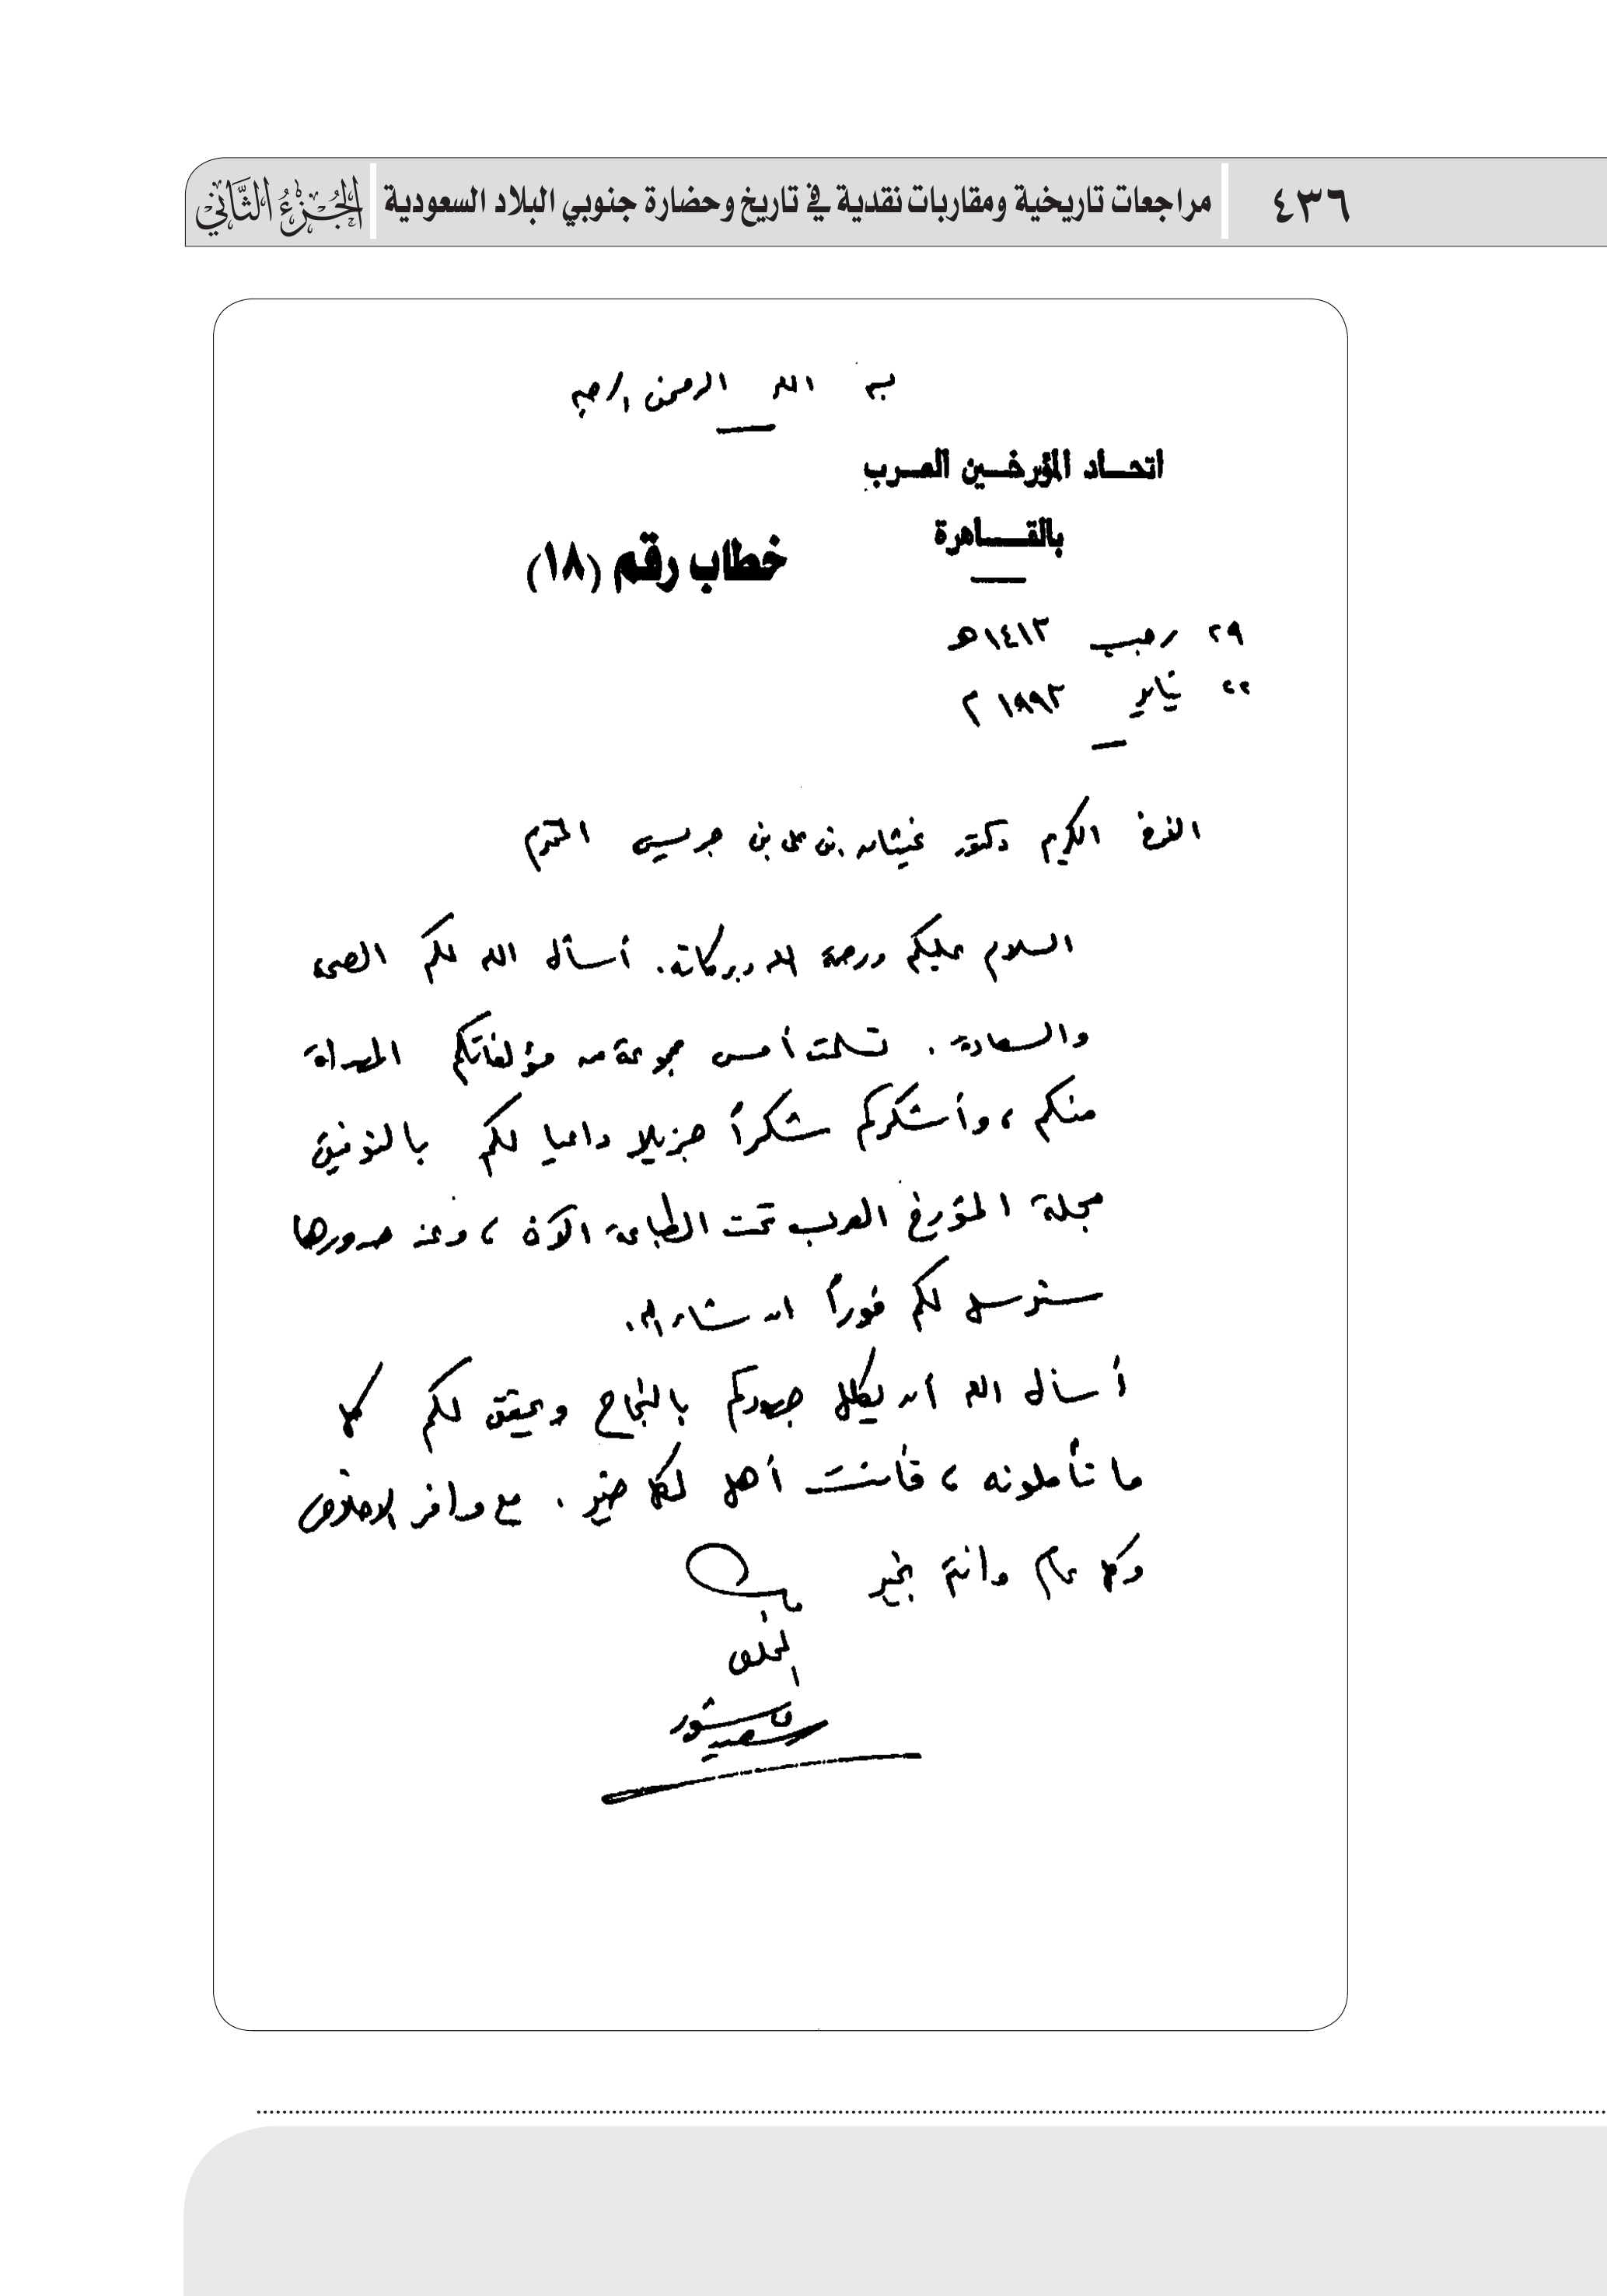 ٤٣٦ مراجعات تاريخية ومقاربات نقدية في تاريخ وحضارة جنوبي البلاد السعودية الجُزءُ الثَّاني
بسم الله الرحمن الرحيم
اتحاد المؤرخين العرب
بالقاهرة
خطاب رقم (١٨)
٢٩ رجب ١٤١٣هـ
٢٢ يناير ١٩٩٣م
الكريم دكتور غيثان بن على بن جريس المحترم
السلام عليكم ورحمة الله وبركاته. أسأل الله لكم الصحة
والسعادة. تسلمت أمس مجموعة من مؤلفاتكم المهداة
منكم، وأشكركم شكراً جزيلا داعيا لكم بالتوفيق
مجلة المؤرخ العربى تحت الطباعة الآن، وعند صدورها
سترسل لكم فوراً ان شاء الله.
أسأل الله أن يكلل جهودكم بالنجاح ويحقق لكم كل
ما تأملونه، فأنت أهل لكل خير. مع وافر الاخلاص
وكل عام وانتم بخير
المخلص